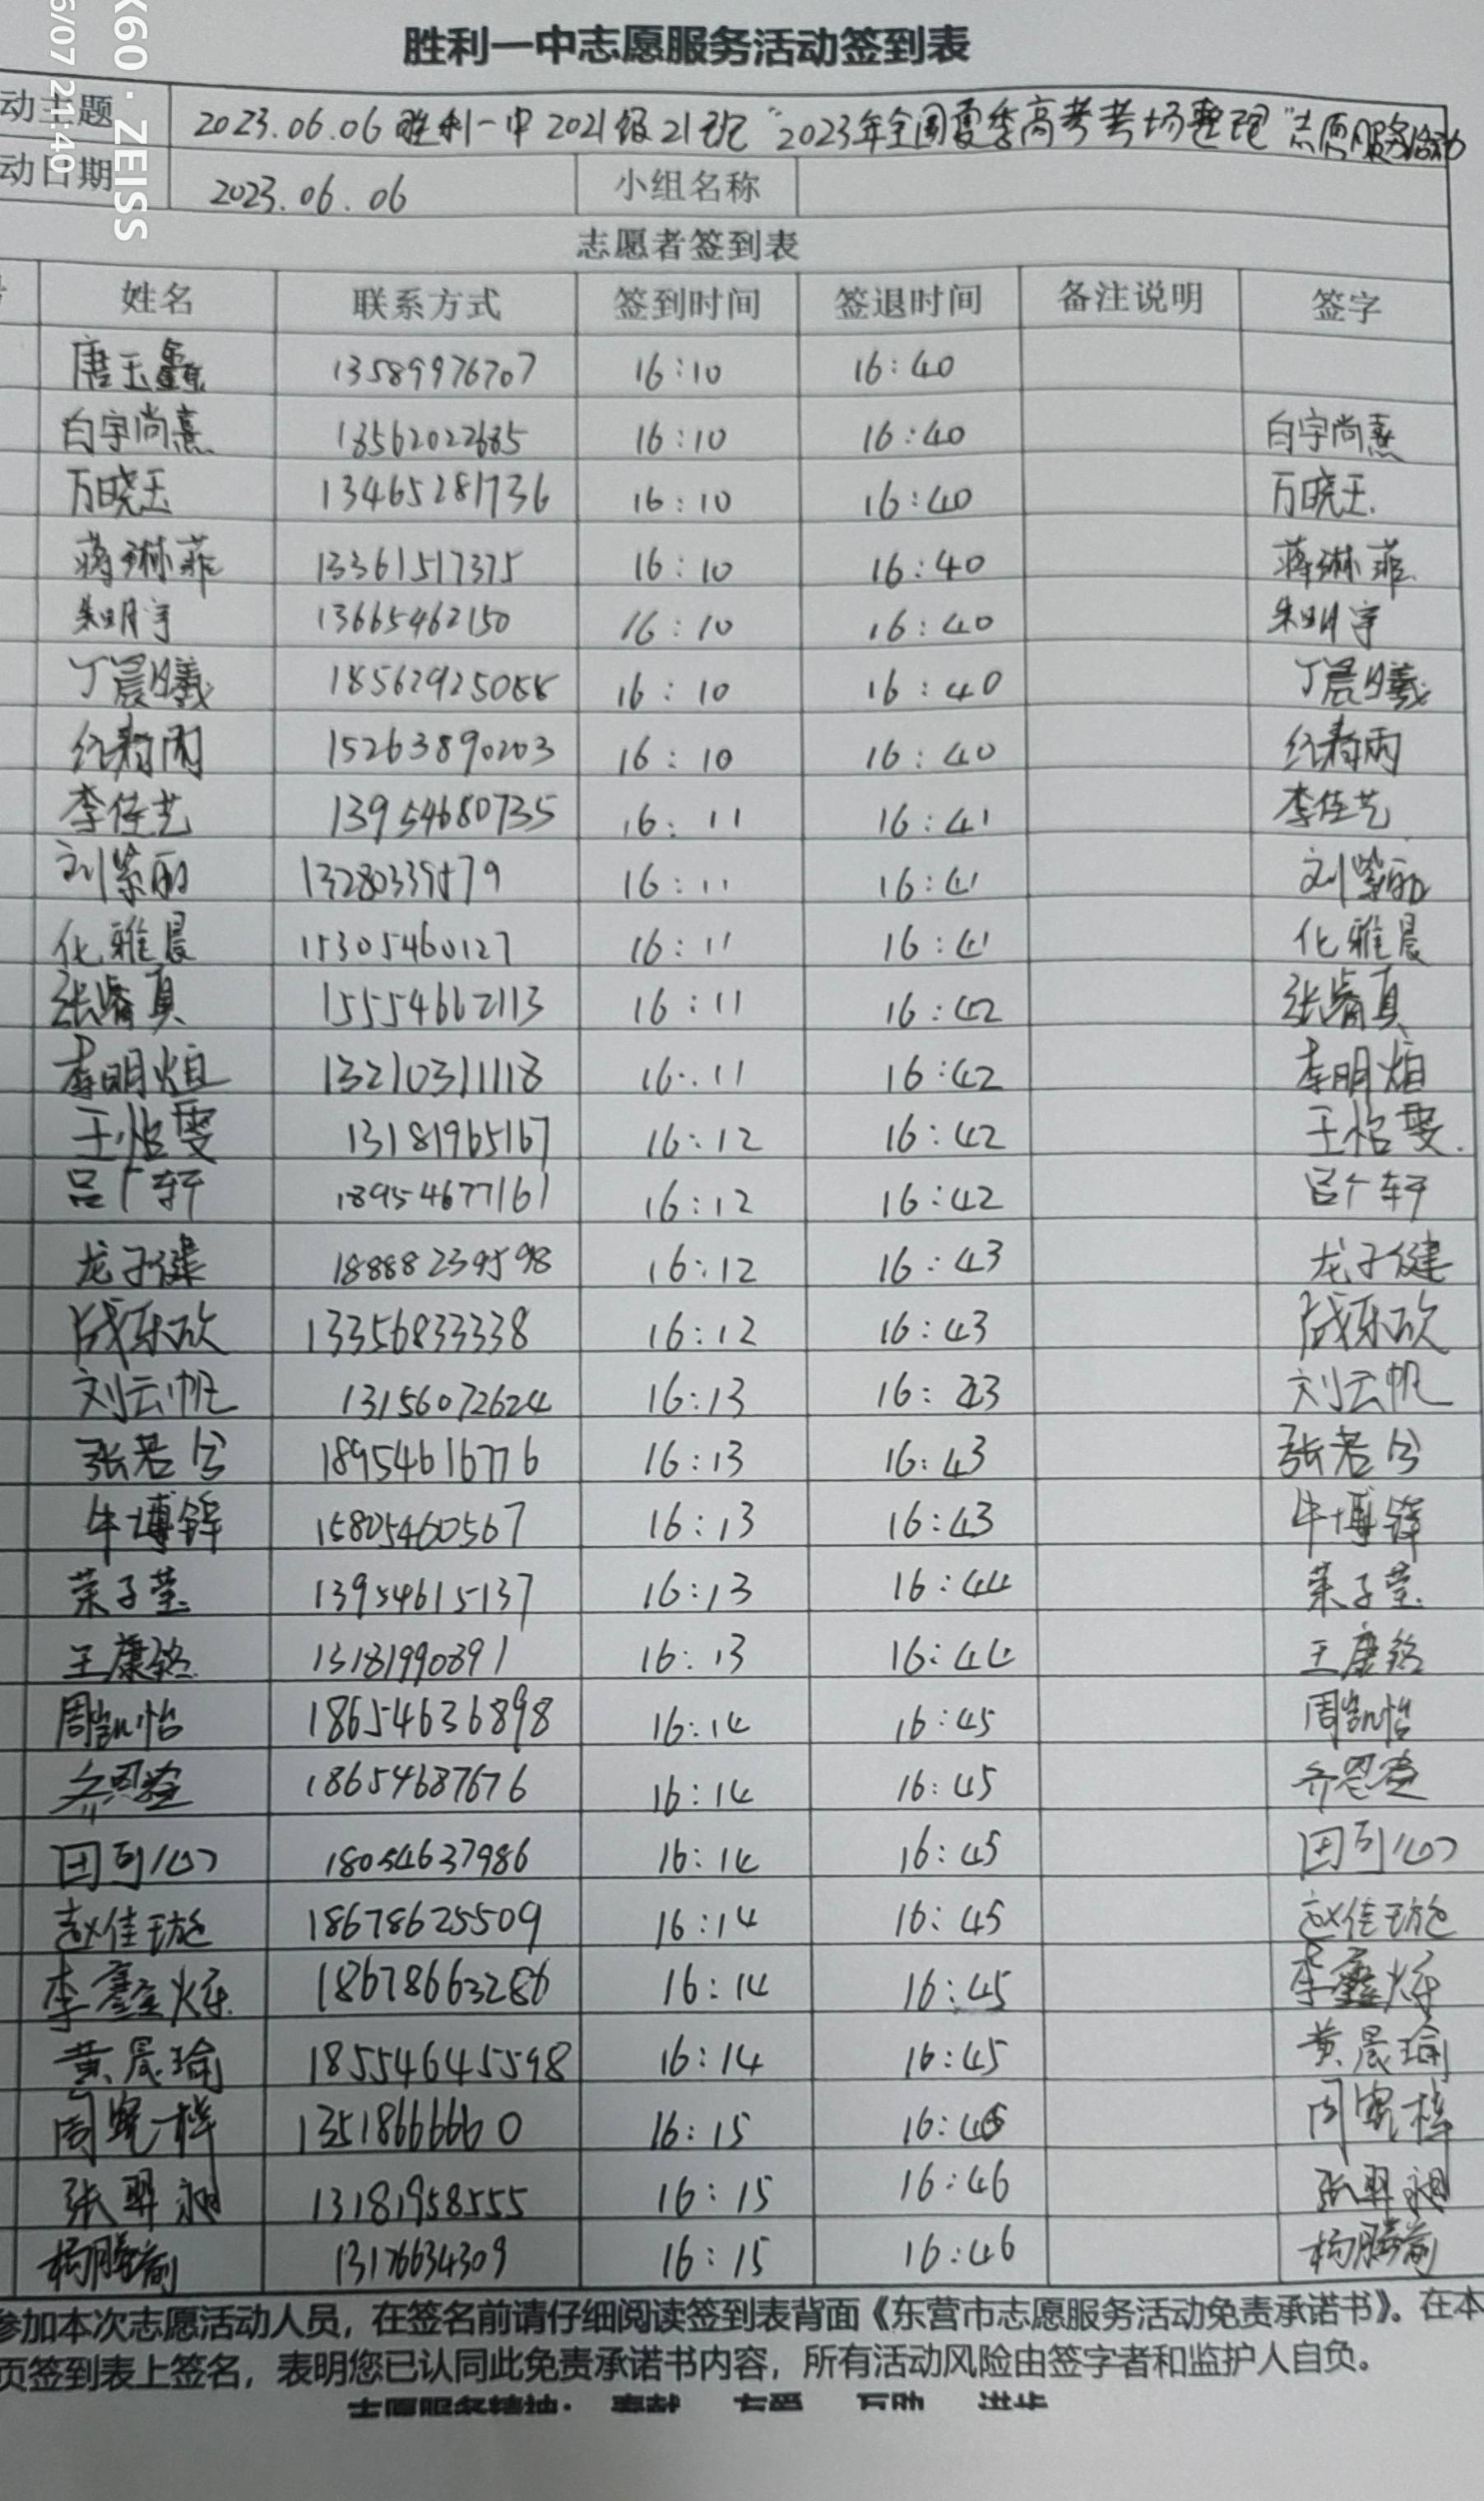 胜利一中志愿服务活动签到表
动主题 2023.06.06 胜利一中2021级21班“2023年全国夏季高考考场整理”志愿服务活动
动日期 2023.06.06 小组名称
志愿者签到表
姓名 联系方式 签到时间 签退时间 备注说明 签字
唐玉鑫 13589976707 16:10 16:40
白宇尚熹 13562022685 16:10 16:40 白宇尚熹
万晓玉 13465281736 16:10 16:40 万晓玉.
蒋琳菲 13361517375 16:10 16:40 蒋琳菲
朱明宇 13665462150 16:10 16:40 朱明宇
丁晨曦 18562925088 16:10 16:40 丁晨曦
纪春雨 15263890203 16:10 16:40 纪春雨
李佳艺 13954680735 16:11 16:41 李佳艺
刘紫丽 13280339579 16:11 16:41 刘紫丽
化雅晨 15305460127 16:11 16:41 化雅晨
张睿真 15554662113 16:11 16:42 张睿真
李明烜 13210311118 16:11 16:42 李明烜
王怡雯 13181965167 16:12 16:42 王怡雯.
吕广轩 18954677161 16:12 16:42 吕广轩
龙子健 18888239598 16:12 16:43 龙子健
战乐欣 13356833338 16:12 16:43 战乐欣
刘云帆 13156072624 16:13 16:43 刘云帆
张若兮 18954616776 16:13 16:43 张若兮
牛博铎 15805460567 16:13 16:43 牛博铎
荣子莹 13954615137 16:13 16:44 荣子莹
王康铭 13181990891 16:13 16:44 王康铭
周凯怡 18654636898 16:14 16:45 周凯怡
齐恩萱 18654687676 16:14 16:45 齐恩萱
田可心 18054637986 16:14 16:45 田可心
赵佳璇 18678625509 16:14 16:45 赵佳璇
李鑫烁 18678663286 16:14 16:45 李鑫烁
黄晨瑜 18554645598 16:14 16:45 黄晨瑜
周 13518666660 16:15 16:45 周
张羿昶 13181958555 16:15 16:46 张羿昶
杨腾 13176634309 16:15 16:46 杨腾
参加本次志愿活动人员，在签名前请仔细阅读签到表背面《东营市志愿服务活动免责承诺书》。在本
页签到表上签名，表明您已认同此免责承诺书内容，所有活动风险由签字者和监护人自负。
志愿服务精神：奉献 友爱 互助 进步
K60 · ZEISS
6/07 21:40